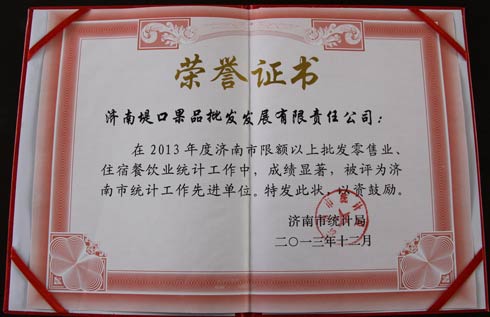 荣誉证书
济南堤口果品批发发展有限责任公司：
在2013年度济南市限额以上批发零售业、
住宿餐饮业统计工作中，成绩显著，被评为济
南市统计工作先进单位。特发此状，以资鼓励。
济南市统计局
二〇一三年十二月